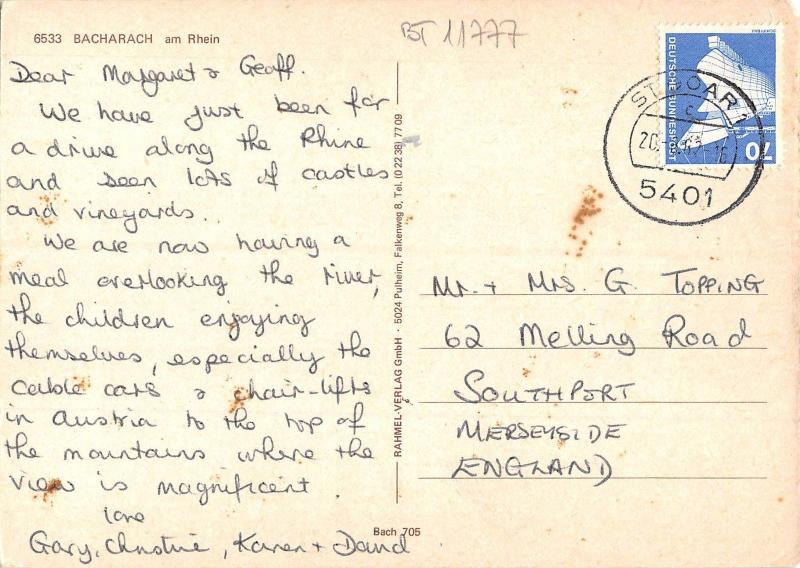 6533 BACHARACH am Rhein
BT 11777
Dear Margaret & Geoff.
We have just been for
a drive along the Rhine
and seen lots of castles
and vineyards.
We are now having a
meal overlooking the river,
the children enjoying
themselves, especially the
cable cars & chair-lifts
in Austria to the top of
the mountains where the
view is magnificent.
love
Gary, Christine, Karen + David
RAHMEL-VERLAG GmbH · 5024 Pulheim, Falkenweg 8, Tel. (0 22 38) 77 09
Bach 705
DEUTSCHE BUNDESPOST
70
ST GOAR 1
c
5401
Mr. + Mrs. G. TOPPING
62 Melling Road
SOUTHPORT
MERSEYSIDE
ENGLAND